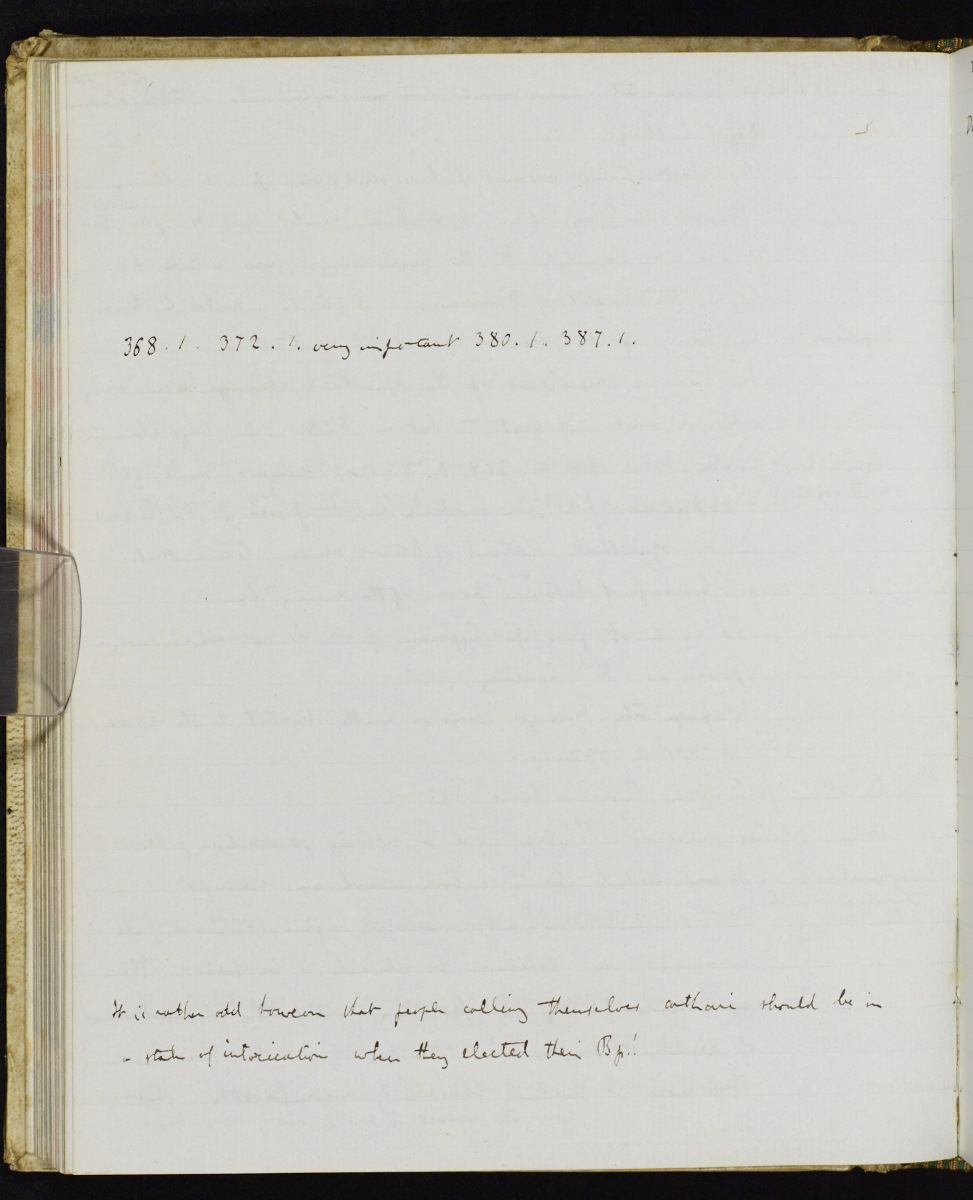 368.1. 372.1. very important 380.1. 387.1.
It is rather odd however that people calling themselves cathari should be in
a state of intoxication when they elected their Bp.!